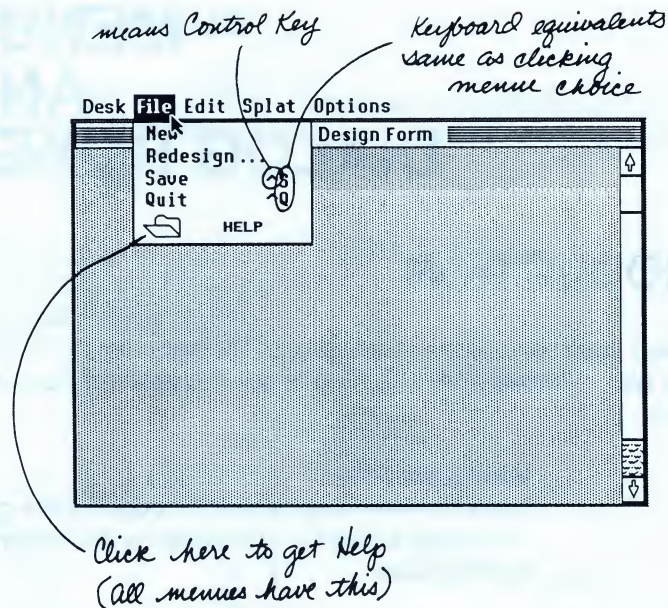 means Control Key
Keyboard equivalents
same as clicking
menue choice
Desk File Edit Splat Options
Design Form
New
Redesign...
Save ^S
Quit ^Q
HELP
Click here to get Help
(all menues have this)